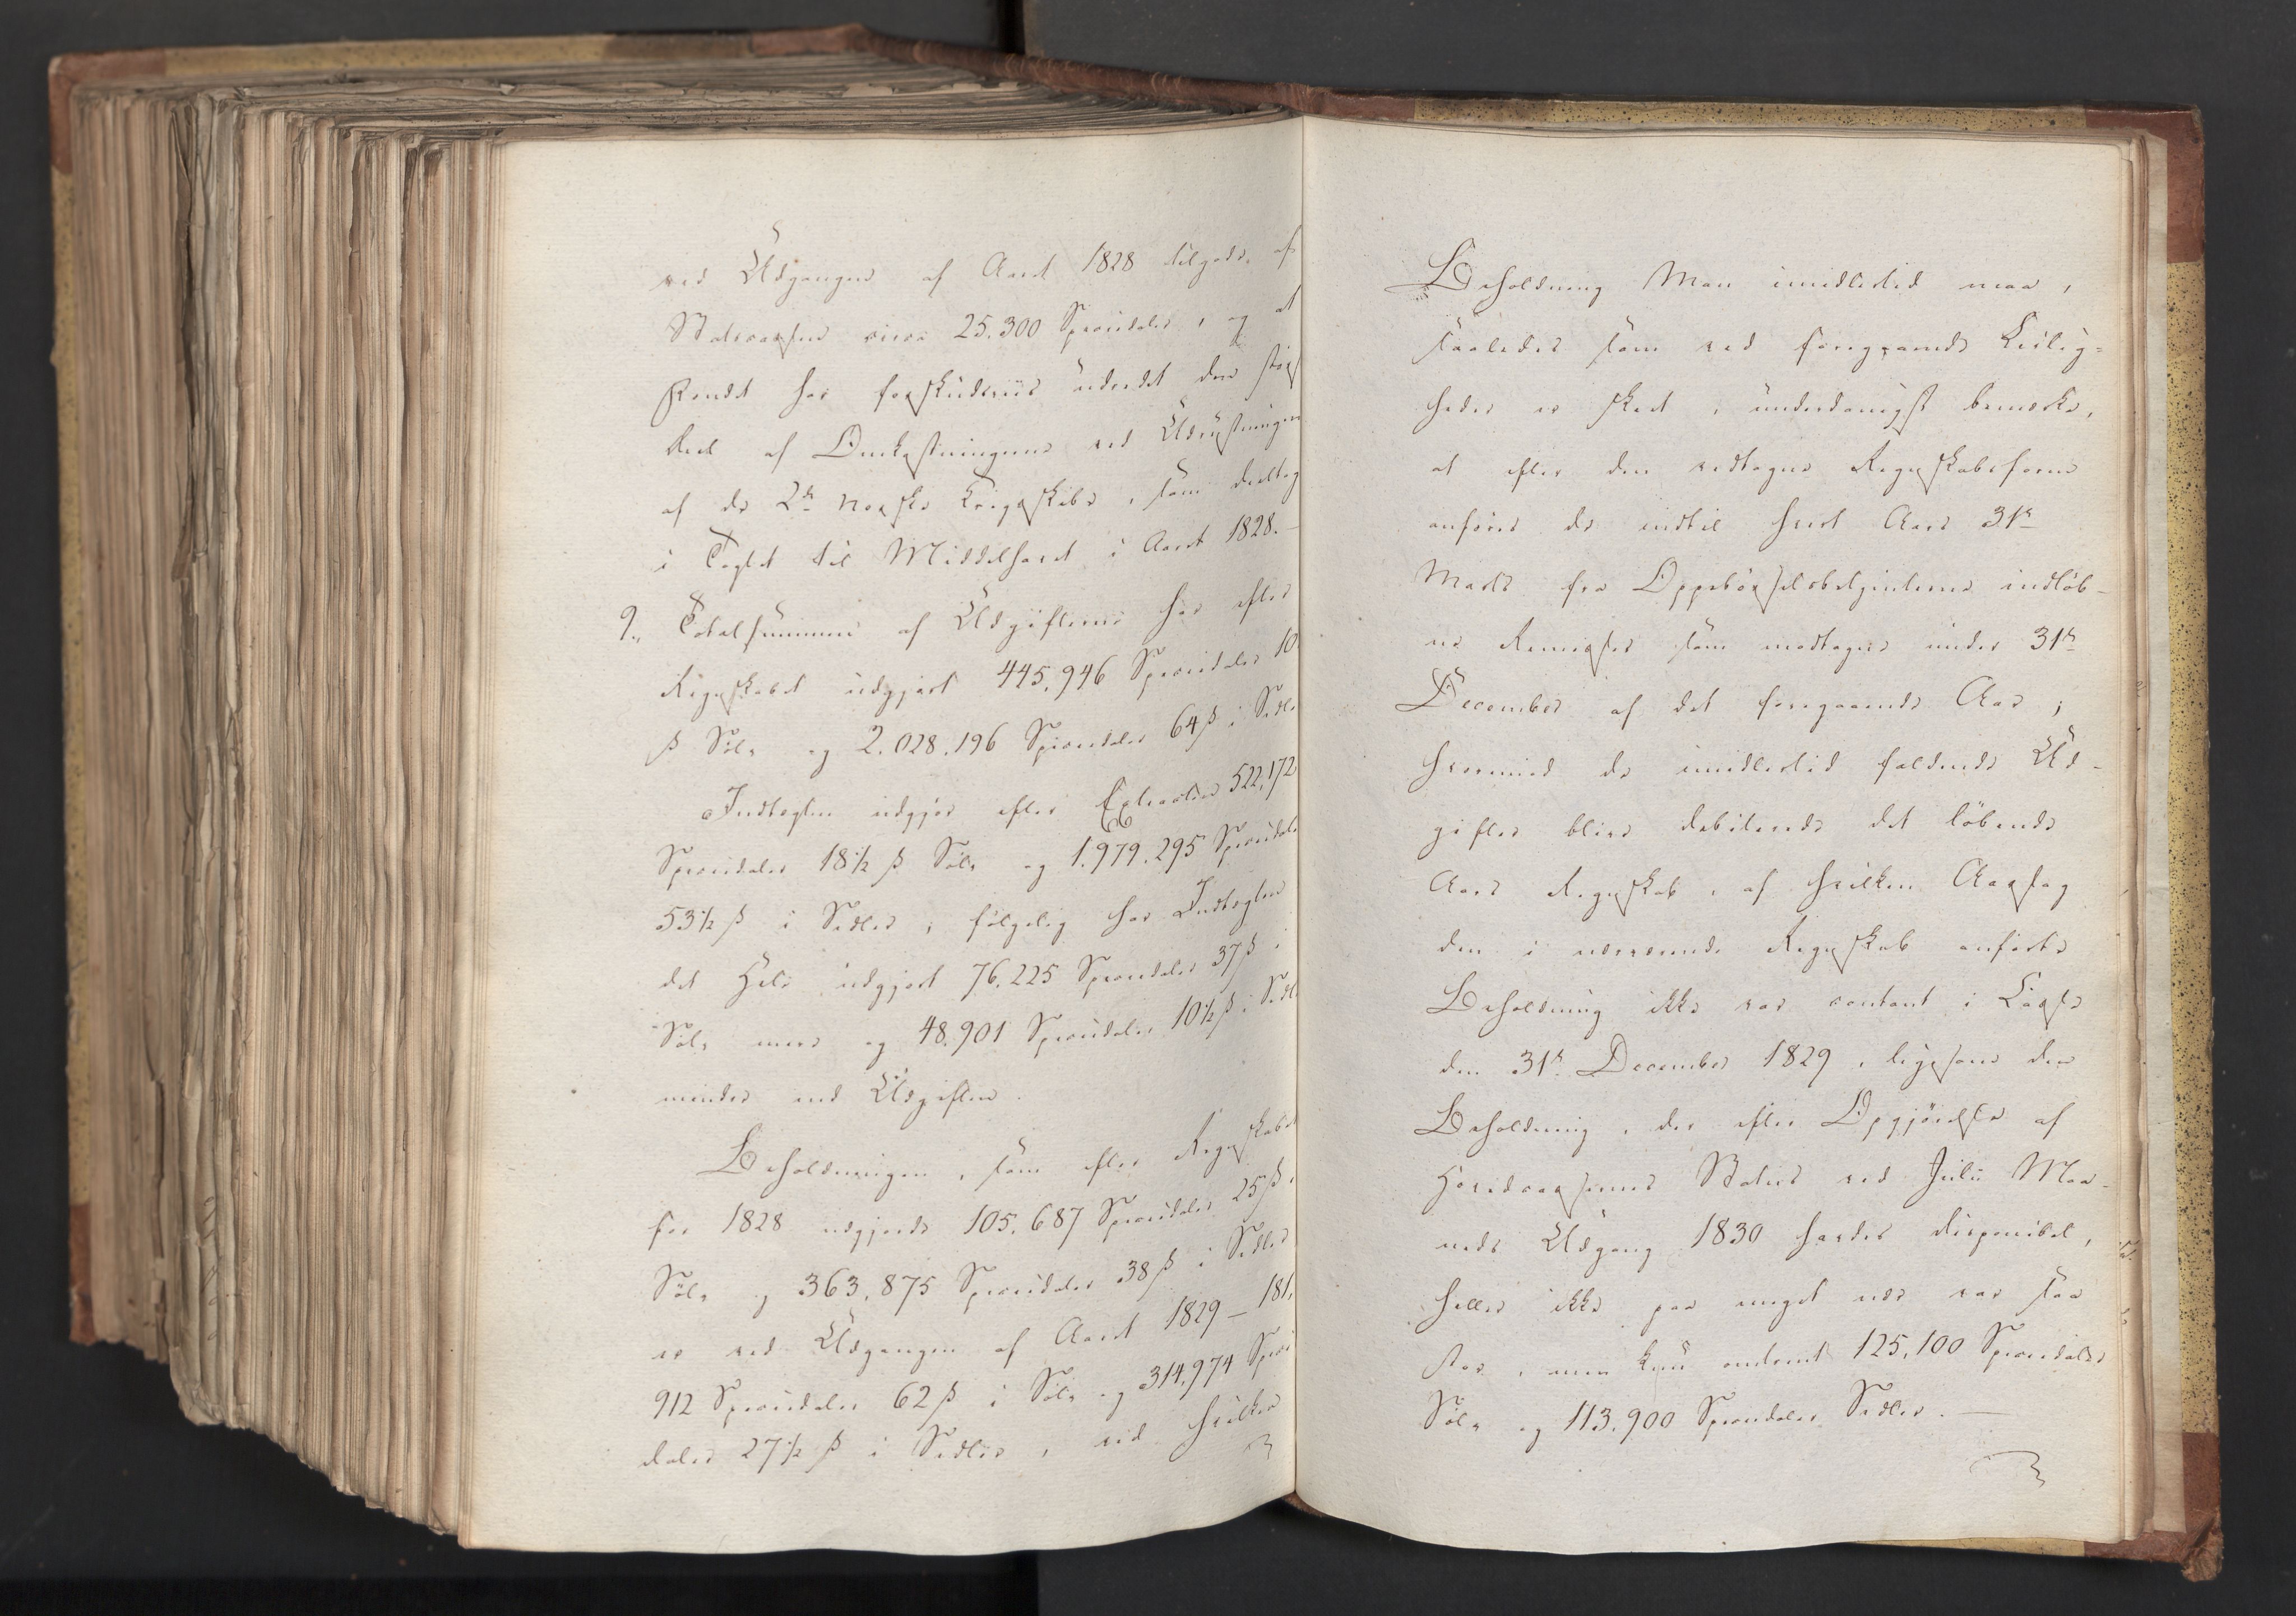 ved Udgangen af Aaret 1828 tilgode af
Statscassen circa 25.300 Speciedaler, og at
Fondet har forskudsviis udredet den største
Deel af Omkostningerne ved Udrustningen
af de 2de norske Krigsskibe, som deeltog
i Togtet til Middelhavet i Aaret 1828.—
9., Totalsummen af Udgifterne har efter
Regnskabet udgjort 445.946 Speciedaler 10
ß Sølv og 2.028.196 Speciedaler 64 ß i Sedler
Indtægten udgjør efter Extracten 522,172
Speciedaler 18½ ß Sølv og 1.979.295 Speciedaler
53½ ß i Sedler; følgelig har Indtægten
det Hele udgjort 76.225 Speciedaler 37 ß i
Sølv mere og 48.901 Speciedaler 10½ ß i Sedler
mindre end Udgiften.
Beholdningen, som efter Regnskabet
for 1828 udgjorde 105.687 Speciedaler 25 ß
Sølv og 363,875 Speciedaler 38 ß i Sedler
er ved Udgangen af Aaret 1829 — 181,
912 Speciedaler 62 ß i Sølv og 314,974 Specie
daler 27½ ß i Sedler, ved hvilken
Beholdning Man imidlertid maa,
saaledes som ved foregaaende Leilig=
heder er skeet, underdanigst bemærke,
at efter den vedtagne Regnskabsform
anføres de indtil hvert Aars 31te
Marts fra Oppebørselsbetjenterne indløb-
ne Remisser som modtagne under 31te
December af det foregaaende Aar;
hvorimod de imidlertid faldende Ud-
gifter blive debiterede det løbende
Aars Regnskab, af hvilken Aarsag
den i nærværende Regnskab anførte
Beholdning ikke var contant i Casse
den 31te December 1829, ligesom den
Beholdning, der efter Opgjørelse af
Hovedcassens Status ved Julii Maa-
neds Udgang 1830 havdes disponibel,
heller ikke paa meget nær var saa
stor, men kun omtrent 125,100 Speciedaler
Sølv og 113.900 Speciedaler Sedler.—